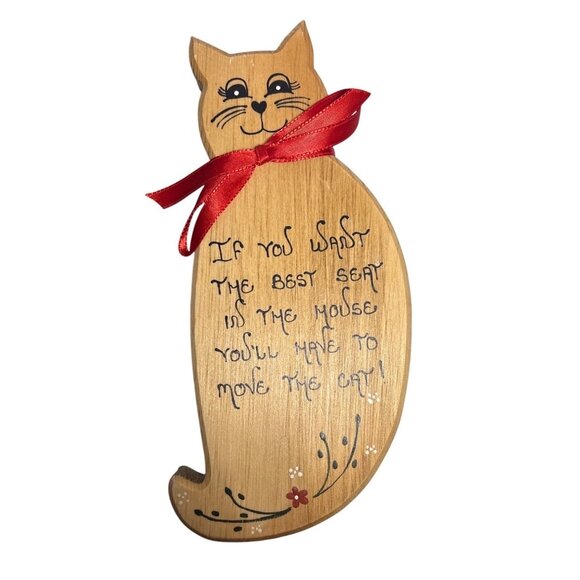 If you want
the best seat
in the house
you'll have to
move the cat!